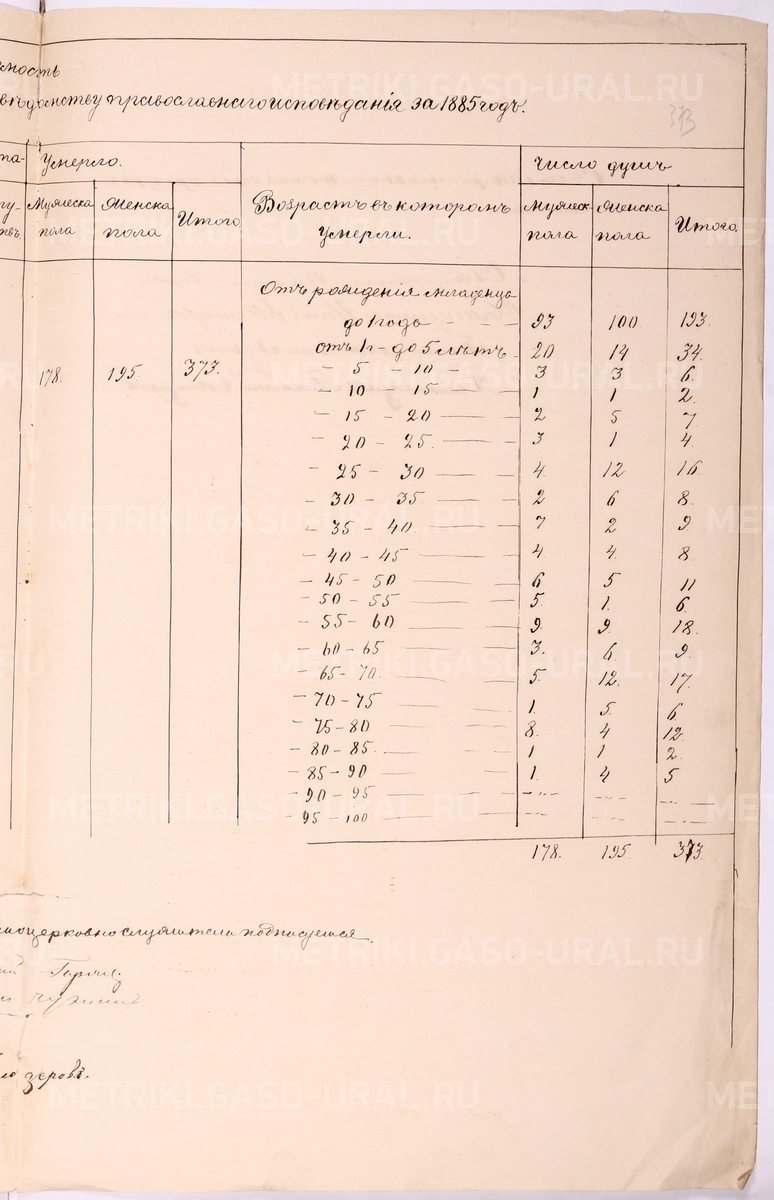 METRIKI.GASO-URAL.RU
ность
вѣдомству православнаго исповѣданія за 1885 годъ.
Умерло. Число душъ
Мужеска пола Женска пола Итого Возрастъ въ которомъ умерли. Мужеск. пола Женска пола Итого.
Отъ рожденія младенца
до 1 года - - - 93 100 193.
отъ 1 - до 5 лѣтъ - 20 14 34.
178. 195. 373. - 5 - 10 - 3 3 6.
- 10 - 15. - 1 1 2.
- 15 - 20 - 2 5 7
- 20 - 25. - 3 1 4
- 25 - 30 - 4. 12 16.
- 30 - 35 - 2 6 8.
- 35 - 40 - 7 2 9.
- 40 - 45 - 4. 4. 8
- 45 - 50 - 6 5 11
- 50 - 55 - 5. 1. 6
- 55 - 60 - 9. 9. 18.
- 60 - 65 - 3. 6 9
- 65 - 70. - 5. 12. 17.
- 70 - 75 - 1. 5. 6
- 75 - 80 - 8. 4 12.
- 80 - 85. - 1 1 2.
- 85 - 90 - 1. 4 5
- 90 - 95 - -"- - - - -
- 95 - 100 - - - - - - -
178. 195. 373.
подписуемся.
зеровъ.